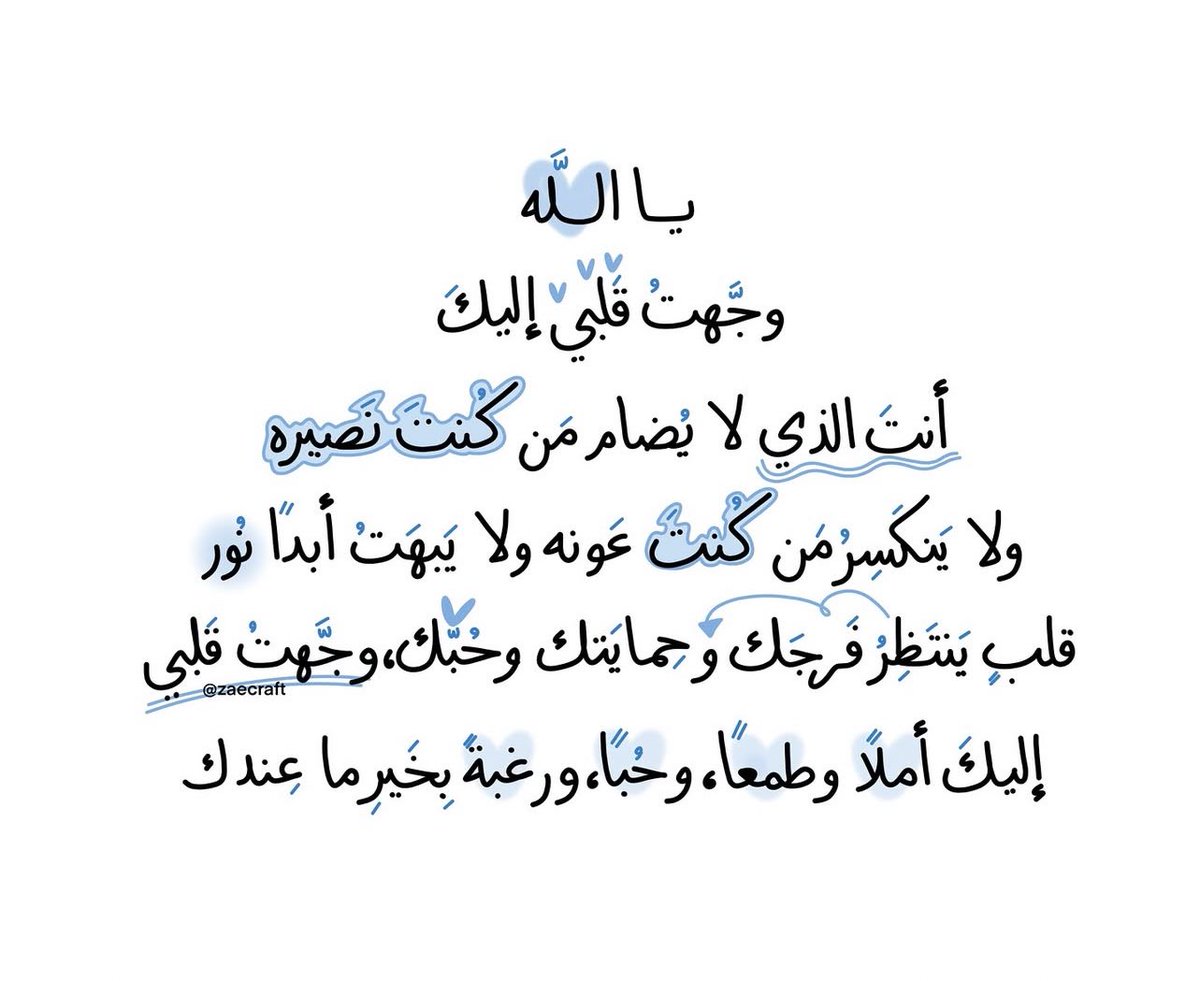 يا اللَّه
وجَّهتُ قَلبي إليكَ
أنتَ الذي لا يُضام مَن كُنتَ نَصيره
ولا يَنكَسِرُ مَن كُنتَ عَونه ولا يَبهَتُ أبدًا نُور
قلبٍ يَنتَظِرُ فَرجَك وَحِمايَتك وحُبَّك، وجَّهتُ قَلبي
@zaecraft
إليكَ أملًا وطمعًا، وحُبًا، ورغبةً بِخَيرِ ما عِندك